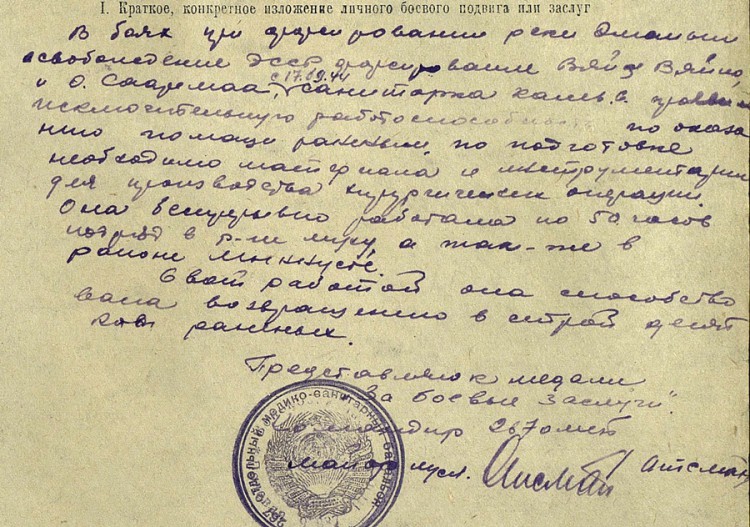 I. Краткое, конкретное изложение личного боевого подвига или заслуг
В боях при форсировании реки Эмайыги
освобождение ЭССР форсирование Вяйн Вяйно,
и о. Сааремаа, с 17.09.44 санитарка
исключительную работоспособность по оказа
нию помощи раненым, по подготовке
необходимо материала и инструментария
для производства хирургических операций.
Она беспрерывно работала по 50 часов
подряд в а так-же в
районе
Своей работой она способство
вала возвращению в строй десят
ков раненых.
Представляю к медали
"За боевые заслуги".
Командир 267 омсб
майор м/сл.
отдельный медико-санитарный батальон
267